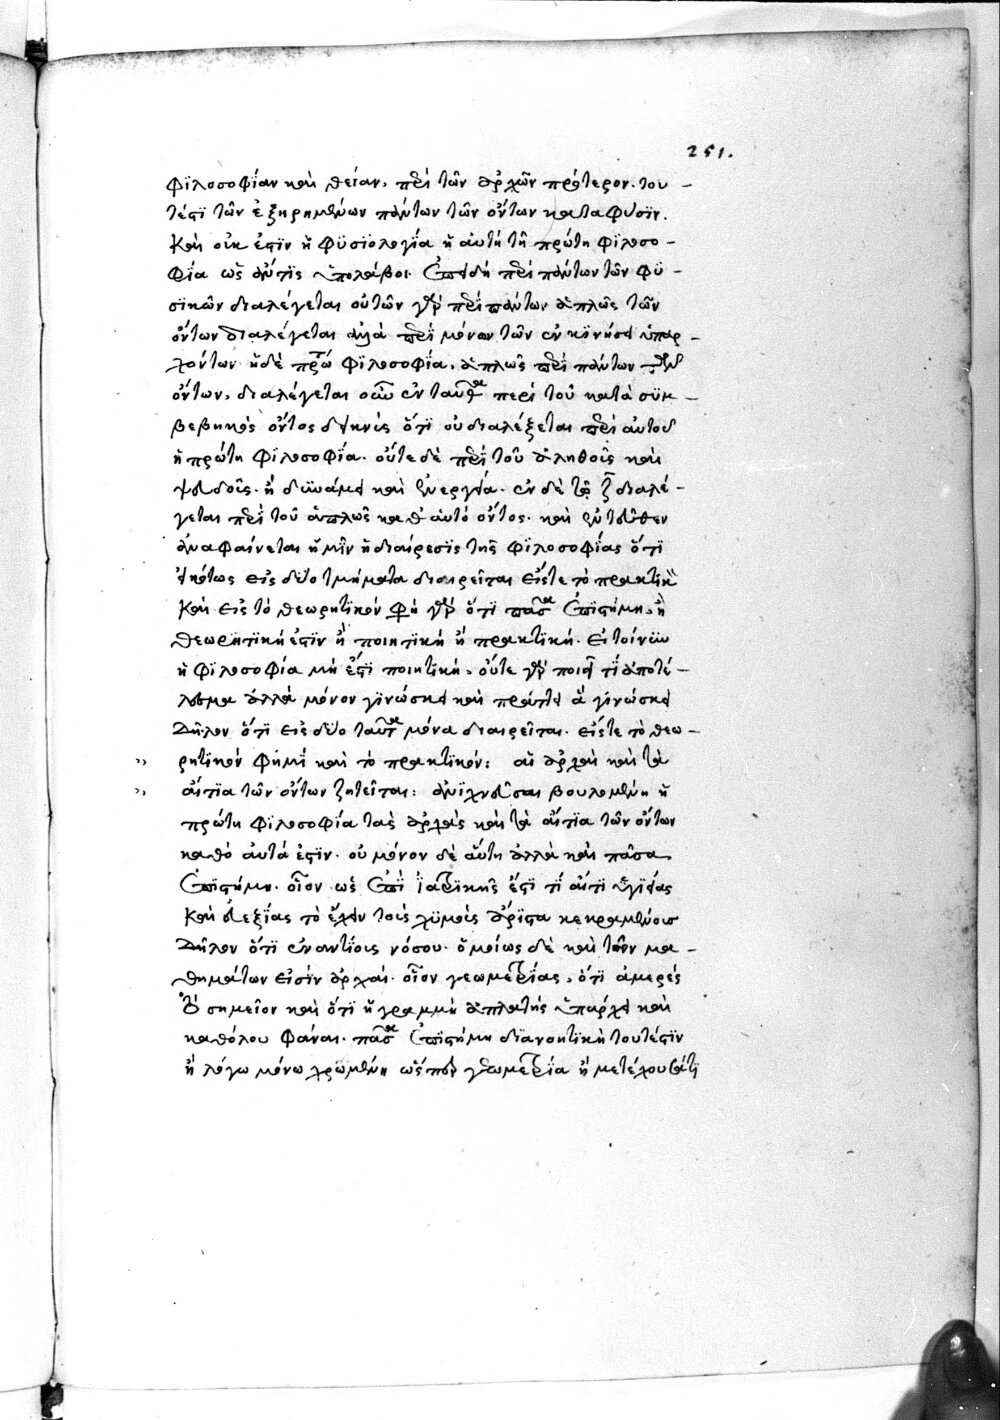 251.
φιλοσοφίαν καὶ θείαν, περὶ τῶν ἀρχῶν πρότερον. του-
τέστι τῶν ἐξηρημένων πάντων τῶν ὄντων κατα φύσιν.
Καὶ οὐκ ἔστιν ἡ φυσιολογία ἡ αὐτὴ τῇ πρώτῃ φιλοσο-
φία ὡς ἄν τις ὑπολάβοι. Ἐπειδὴ περὶ πάντων τῶν φυ-
σικῶν διαλέγεται οὕτων γὰρ περὶ πάντων ἁπλῶς τῶν
ὄντων διαλέγεται ἀλλὰ περὶ μόνων τῶν ἐν κινήσει ὑπαρ-
χόντων. ἡ δὲ πρώτη φιλοσοφία, ἁπλῶς περὶ πάντων τῶν
ὄντων, διαλέγεται οὖν ἐν ταῦθα περὶ τοῦ κατὰ συμ-
βεβηκὸς ὄντος δεικνὺς ὅτι οὐ διαλέξεται περὶ αὐτοῦ
ἡ πρώτη φιλοσοφία. οὔτε δὲ περὶ τοῦ ἀληθοῦς καὶ
ψευδοῦς. ἢ δυνάμει καὶ ἐνεργεία. ἐν δὲ τῷ ζ διαλέ-
γεται περὶ τοῦ ἁπλῶς καθ αὑτὸ ὄντος. καὶ ἐντεῦθεν
ἀναφαίνεται ἡμῖν ἡ διαίρεσις τῆς φιλοσοφίας ὅτι
εἰκότως εἰς δύο τμήματα διαιρεῖται εἴς τε τὸ πρακτικὸν
Καὶ εἰς τὸ θεωρητικόν φησὶ γὰρ ὅτι πᾶσα ἐπιστήμη, ἢ
θεωρητική ἐστιν ἢ ποιητικὴ ἢ πρακτική. εἰ τοίνυν
ἡ φιλοσοφία μή ἐστι ποιητική, οὔτε γὰρ ποιεῖ τί ἀποτέ-
λεσμα ἀλλὰ μόνον γινώσκει καὶ πράττει ἃ γινώσκει
Δῆλον ὅτι εἰς δύο ταῦτα μόνα διαιρεῖται. εἴς τε τὸ θεω-
ρητικόν φημὶ καὶ τὸ πρακτικόν: αἱ ἀρχαὶ καὶ τὰ
αἴτια τῶν ὄντων ζητεῖται: ἀνιχνεῦσαι βουλομένη ἡ
πρώτη φιλοσοφία τὰς ἀρχὰς καὶ τὰ αἴτια τῶν ὄντων
καθὸ αὐτά ἐστιν. οὐ μόνον δὲ αὕτη ἀλλὰ καὶ πᾶσα
Ἐπιστήμη. οἷον ὡς ἐπὶ ἰατρικῆς ἔστι τί αἴτιον ὑγιείας
Καὶ εὐεξίας τὸ ἔχειν τοὺς χυμοὺς ἄριστα κεκραμένους
Δῆλον ὅτι ἐναντίοις νόσου. ὁμοίως δὲ καὶ τῶν μα-
θημάτων εἰσὶν ἀρχαί. οἷον γεωμετρίας, ὅτι ἀμερές
τὸ σημεῖον καὶ ὅτι ἡ γραμμὴ ἀπλατὴς ὑπάρχει καὶ
καθόλου φάναι. πᾶσα ἐπιστήμη διανοητικὴ τουτέστιν
ἡ λόγω μόνω χρωμένη ὥσπερ γεωμετρία ἢ μετέχουσά τι